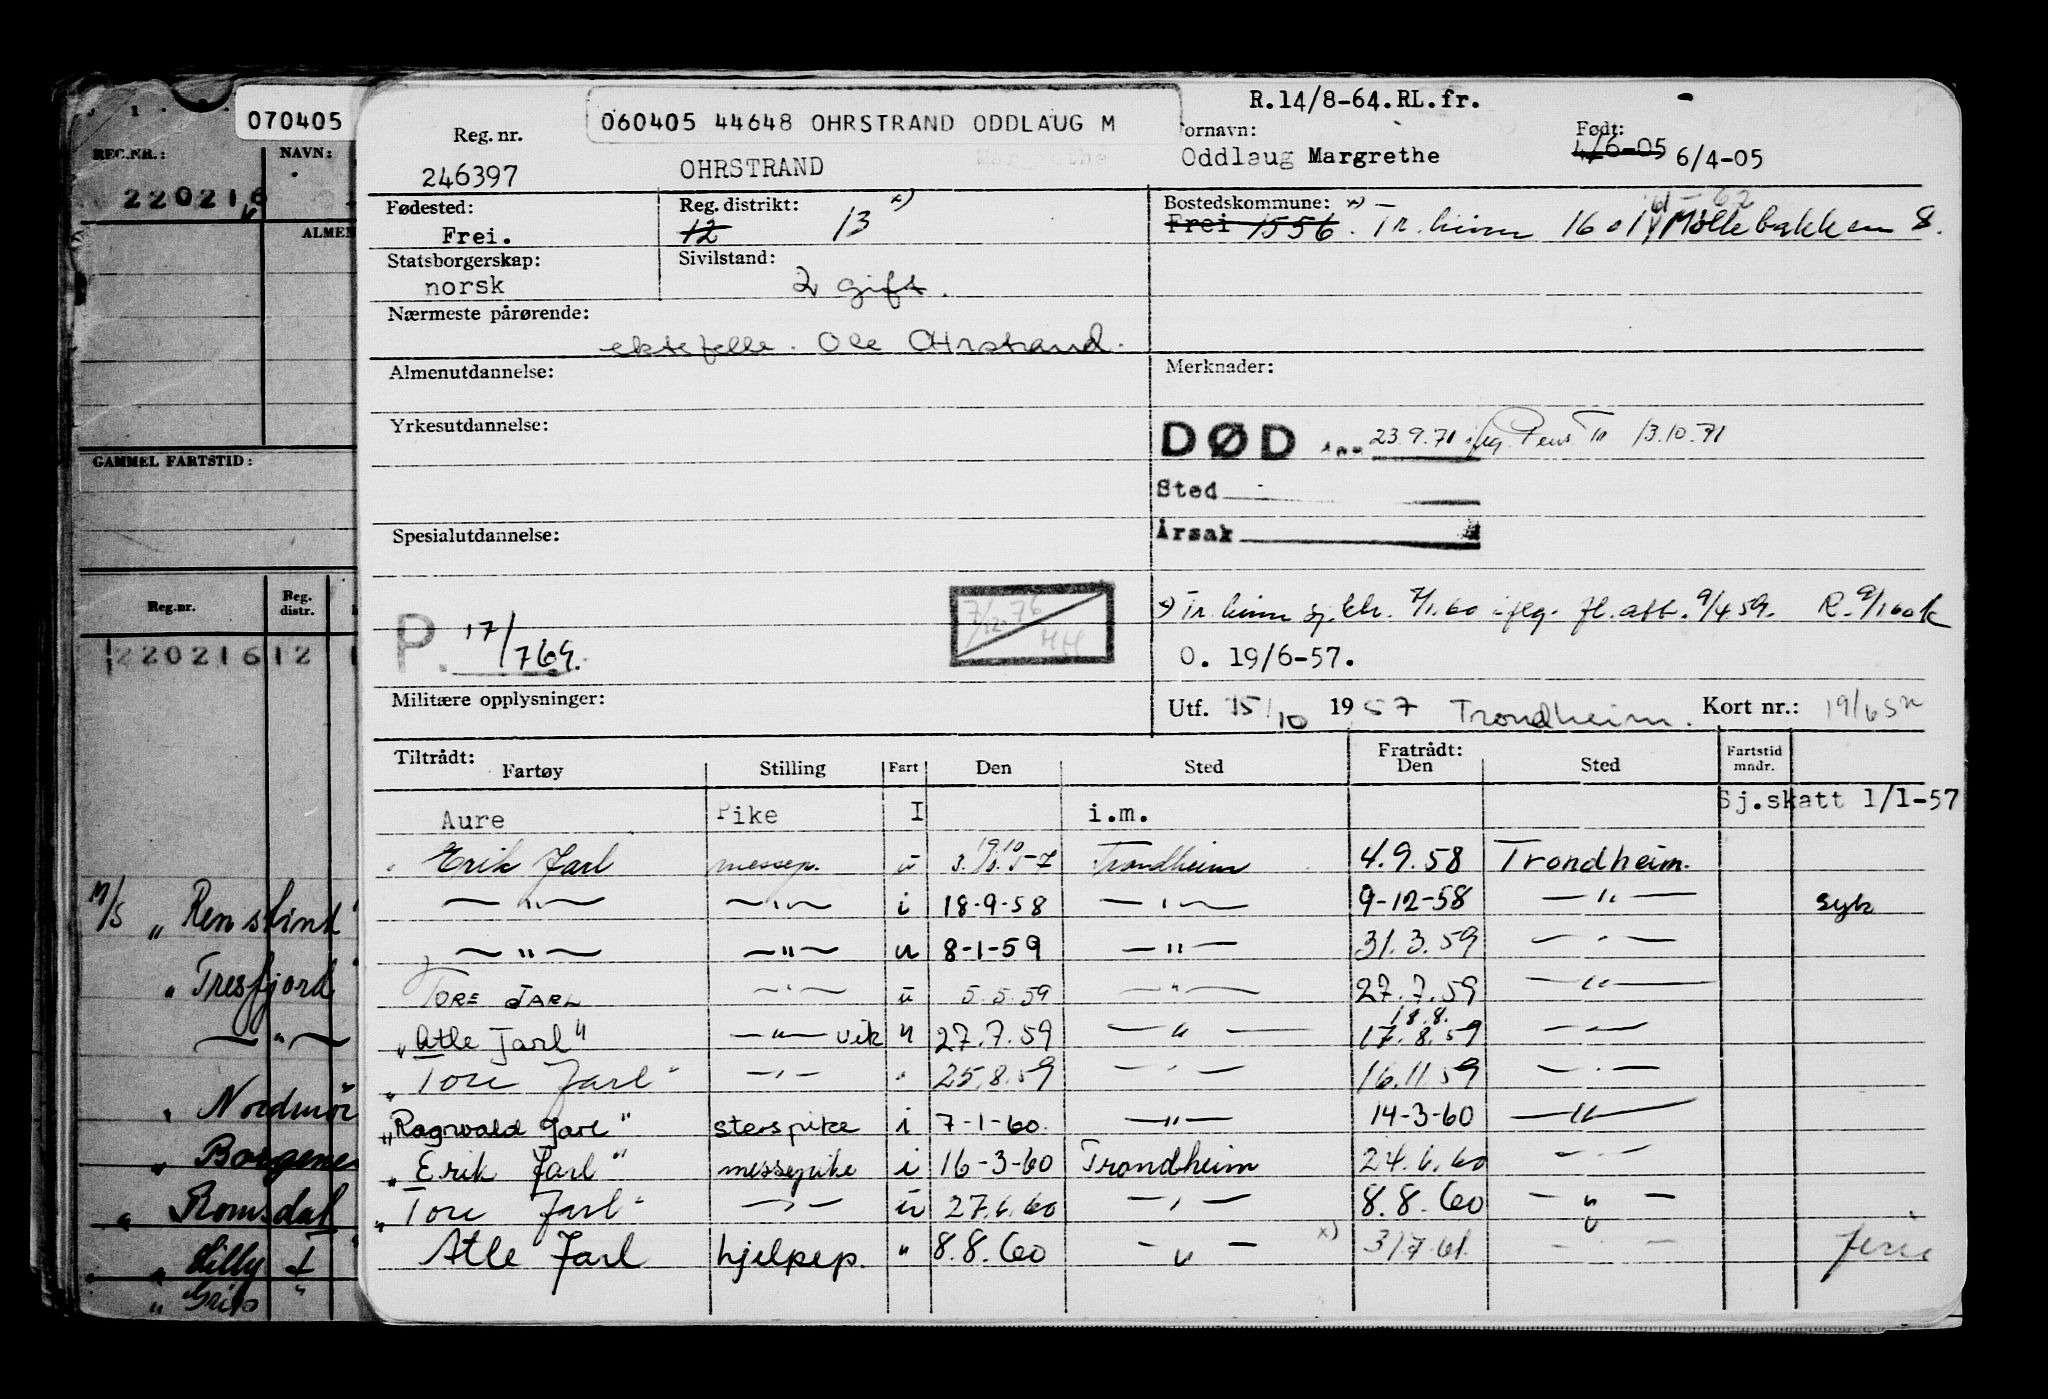 070405
REG.NR.:
NAVN:
220216
GAMMEL FARTSTID:
Reg.nr.
Reg. distr.
220216 12
M/S „ Renstind
„ Tresfjord
— " —
„ Nordmör
„ Borgenes
„ Romsdal
„ Lilly
„ Grip
R.14/8-64.RL.fr.
060405 44648 OHRSTRAND ODDLAUG M
Reg. nr.
246397
OHRSTRAND
Fornavn:
Oddlaug Margrethe
Født:
4/6-05 6/4-05
Fødested:
Frei.
Reg. distrikt:
12 13 x)
Bostedskommune: x)
61-62
Frei 1556. Tr.heim 1601 Möllebakken 8.
Statsborgerskap:
norsk
Sivilstand:
2 gift.
Nærmeste pårørende:
ektefelle. Ole Ohrstrand.
Almenutdannelse:
Merknader:
Yrkesutdannelse:
DØD 23.9.71 iføg. 13.10.71
Sted
Årsak
Spesialutdannelse:
P. 17/769.
7/12-76 HH
x) Tr.heim sj.ktr. 7/1.60 iføg. fl.att. 9/4.59. R. 9/1 60
O. 19/6-57.
Militære opplysninger:
Utf. 15/10 1957 Trondheim. Kort nr.: 19/6 57
Tiltrådt:
Fartøy Stilling Fart Den Sted Fratrådt: Den Sted Fartstid mndr.
Aure Pike I i.m. Sj.skatt 1/1-57
Erik Jarl messep. u 19.10 Trondheim 4.9.58 Trondheim.
— " — — " — i 18-9-58 — " — 9-12-58 — " — syk
— " — — " — u 8-1-59 — " — 31.3.59 — " —
TORE JARL — " — u 5.5.59 — " — 27.7.59 — " —
„Atle Jarl" — " — vik " 27.7.59 — " — 18.8. 17.8.59 — " —
„Tore Jarl" — " — " 25.8.59 — " — 16.11.59 — " —
„Ragnvald Jarl" sterspike i 7-1-60. — " — 14-3-60 — " —
„Erik Jarl" messepike i 16-3-60 Trondheim 24.6.60 — " —
„Tore Jarl" — " — u 27.6.60 — " — 8.8.60 — " —
Atle Jarl hjelpep. " 8.8.60 — " — x) 31.7.61. — " — ferie